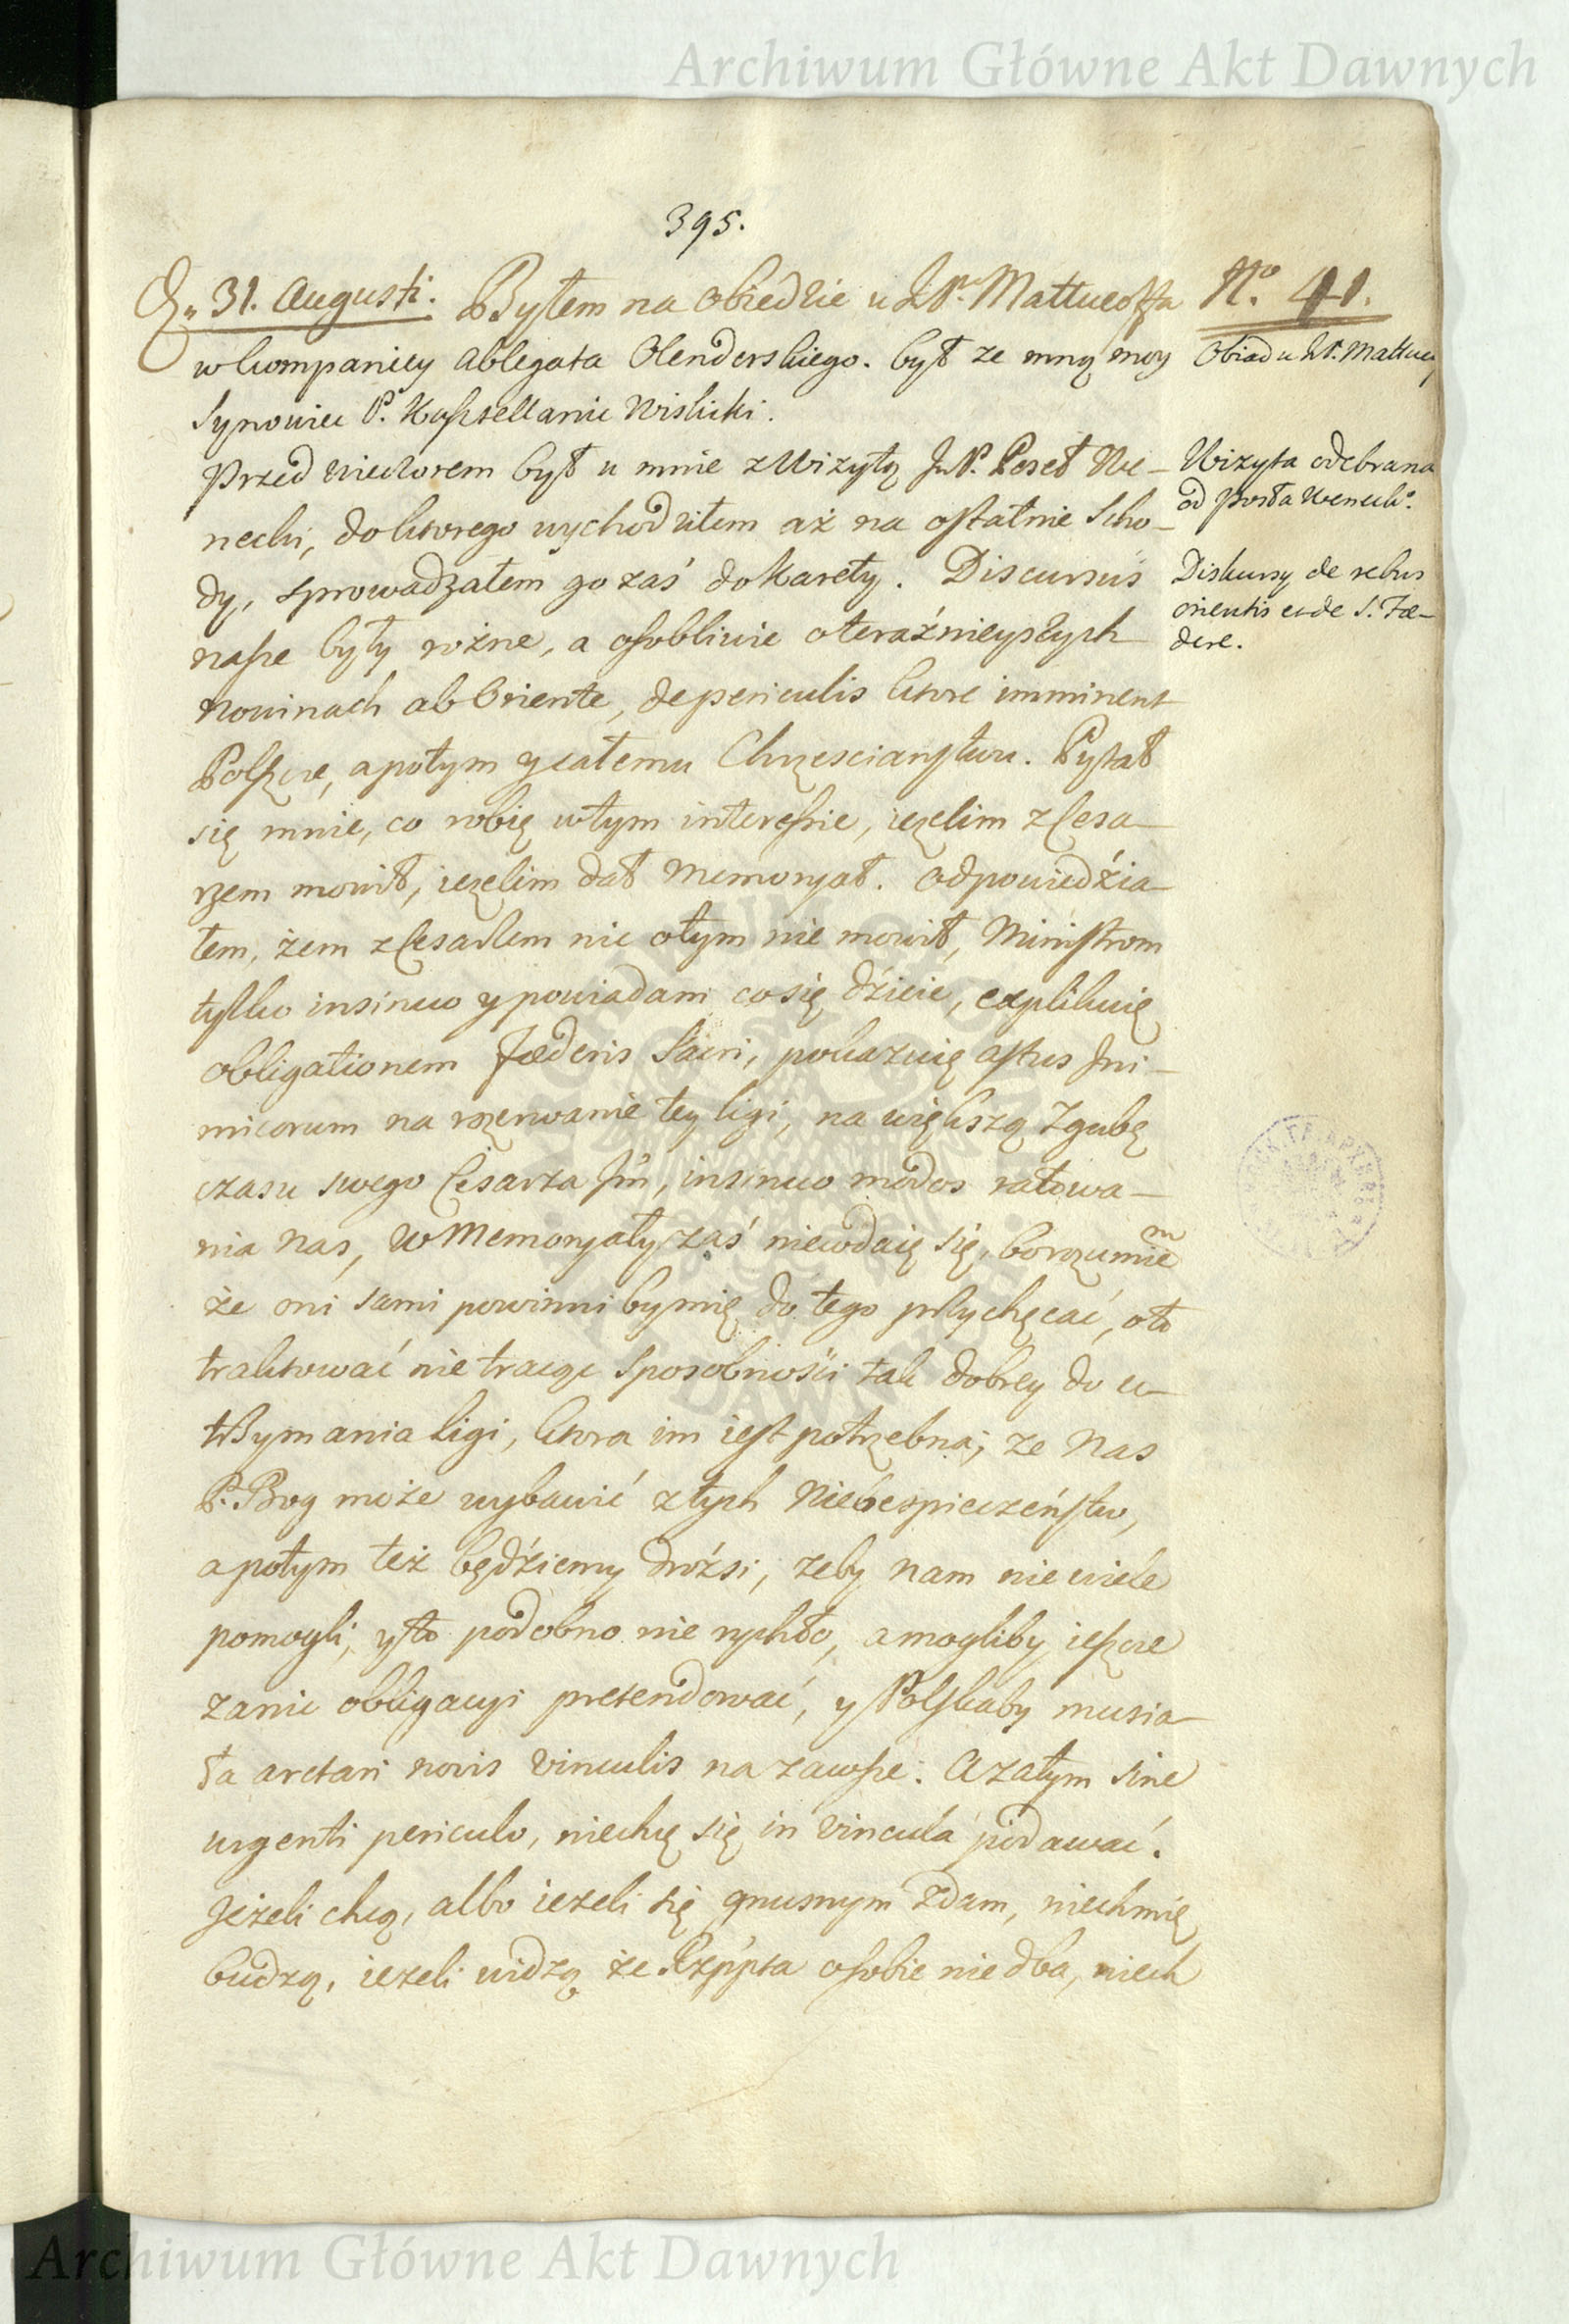 Archiwum Główne Akt Dawnych
395.
31. Augusti. Byłem na obiedzie u
No. 41.
w kompaniey ablegata Olenderskiego. był ze mną moy
Obiad u
Synowiec P. Kasztellanic Wislicki.
Przed wieczorem był u mnie z Wizytą J.P. Poseł We-
Wizyta odebrana
necki, do ktorego wychodziłem aż na ostatnie scho-
od Posła Weneck:
dy, sprowadzałem go zaś do Karety. Discursus
Diskursy de rebus
orientis et de S. Fæ-
nasze były rożne, a osobliwie o teraźnieyszych
dere.
nowinach ab Oriente, de periculis ktore imminent
Polszcze, a potym y całemu Chrzescianstwu. Pytał
się mnie, co robię w tym interessie, ieżelim z Cesa-
rzem mowił, ieżelim dał Memoryał. odpowiedźia-
łem, żem z Cesarzem nic o tym nie mowił, Ministrom
tylko insinuo y powiadam co się dźieie, explikuię
obligationem Fœderis Sacri, pokazuię astus Ini-
micorum na rozerwanie tey ligi, na większą zgubę
czasu swego Cesarza Jm, insinuo modos ratowa-
nia nas, w Memoryały zaś niewdaię się, bo rozumiem
że oni sami powinni by mię do tego przychęcać, o to
traktować nie tracąc sposobności tak dobrey do u-
trzymania Ligi, ktora im iest potrzebna; że nas
P. Bog może wybawić z tych niebespieczeństw,
a potym też będźiemy drożsi, żeby nam nie wiele
pomogli, y to podobno nie rychło, a mogliby ieszcze
za nic obligacyi pretendować, y Polskaby musia-
ła arctari novis vinculis na zawsze. A zatym sine
urgenti periculo, niechcę się in vincula podawać.
Jeżeli chcą, albo ieżeli się gnusnym zdam, niech mię
budzą, ieżeli widzą że Rzppta o sobie nie dba, niech
Archiwum Główne Akt Dawnych